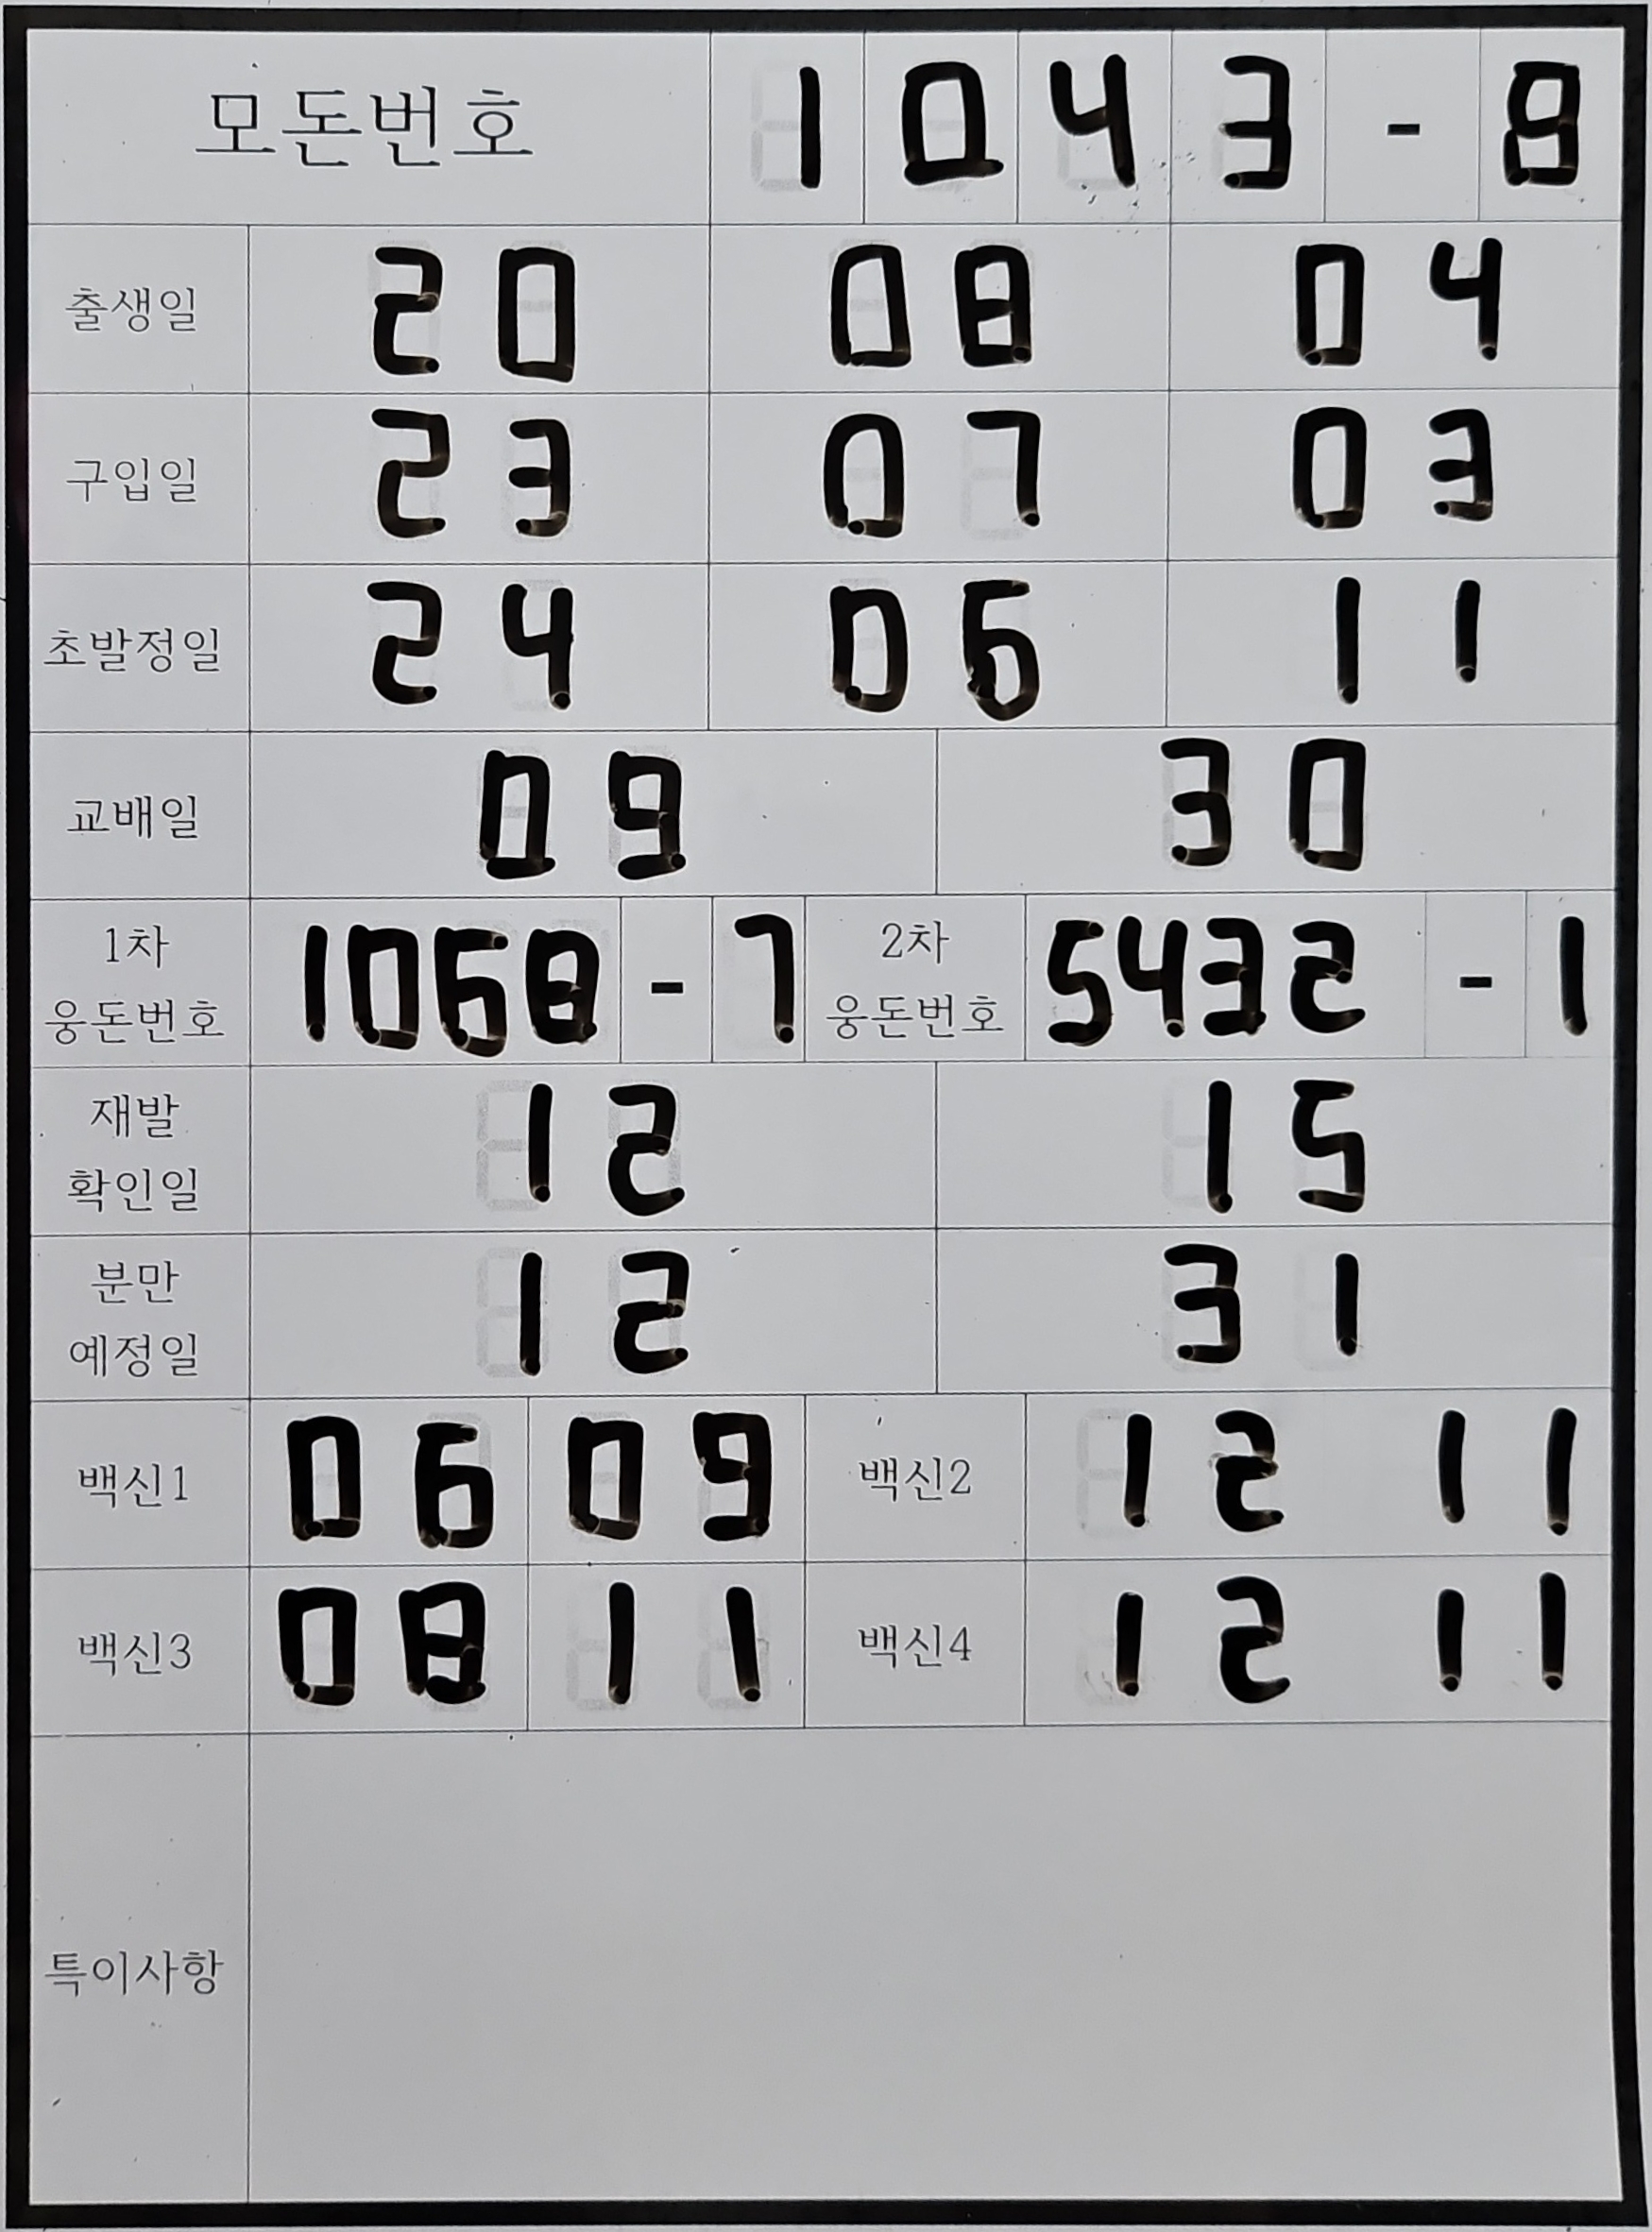 모돈번호 1 0 4 3 - 8
출생일 20 08 04
구입일 23 07 03
초발정일 24 06 11
교배일 09 30
1차 웅돈번호 1068 - 7 2차 웅돈번호 5432 - 1
재발 확인일 12 15
분만 예정일 12 31
백신1 06 09 백신2 12 11
백신3 08 11 백신4 12 11
특이사항